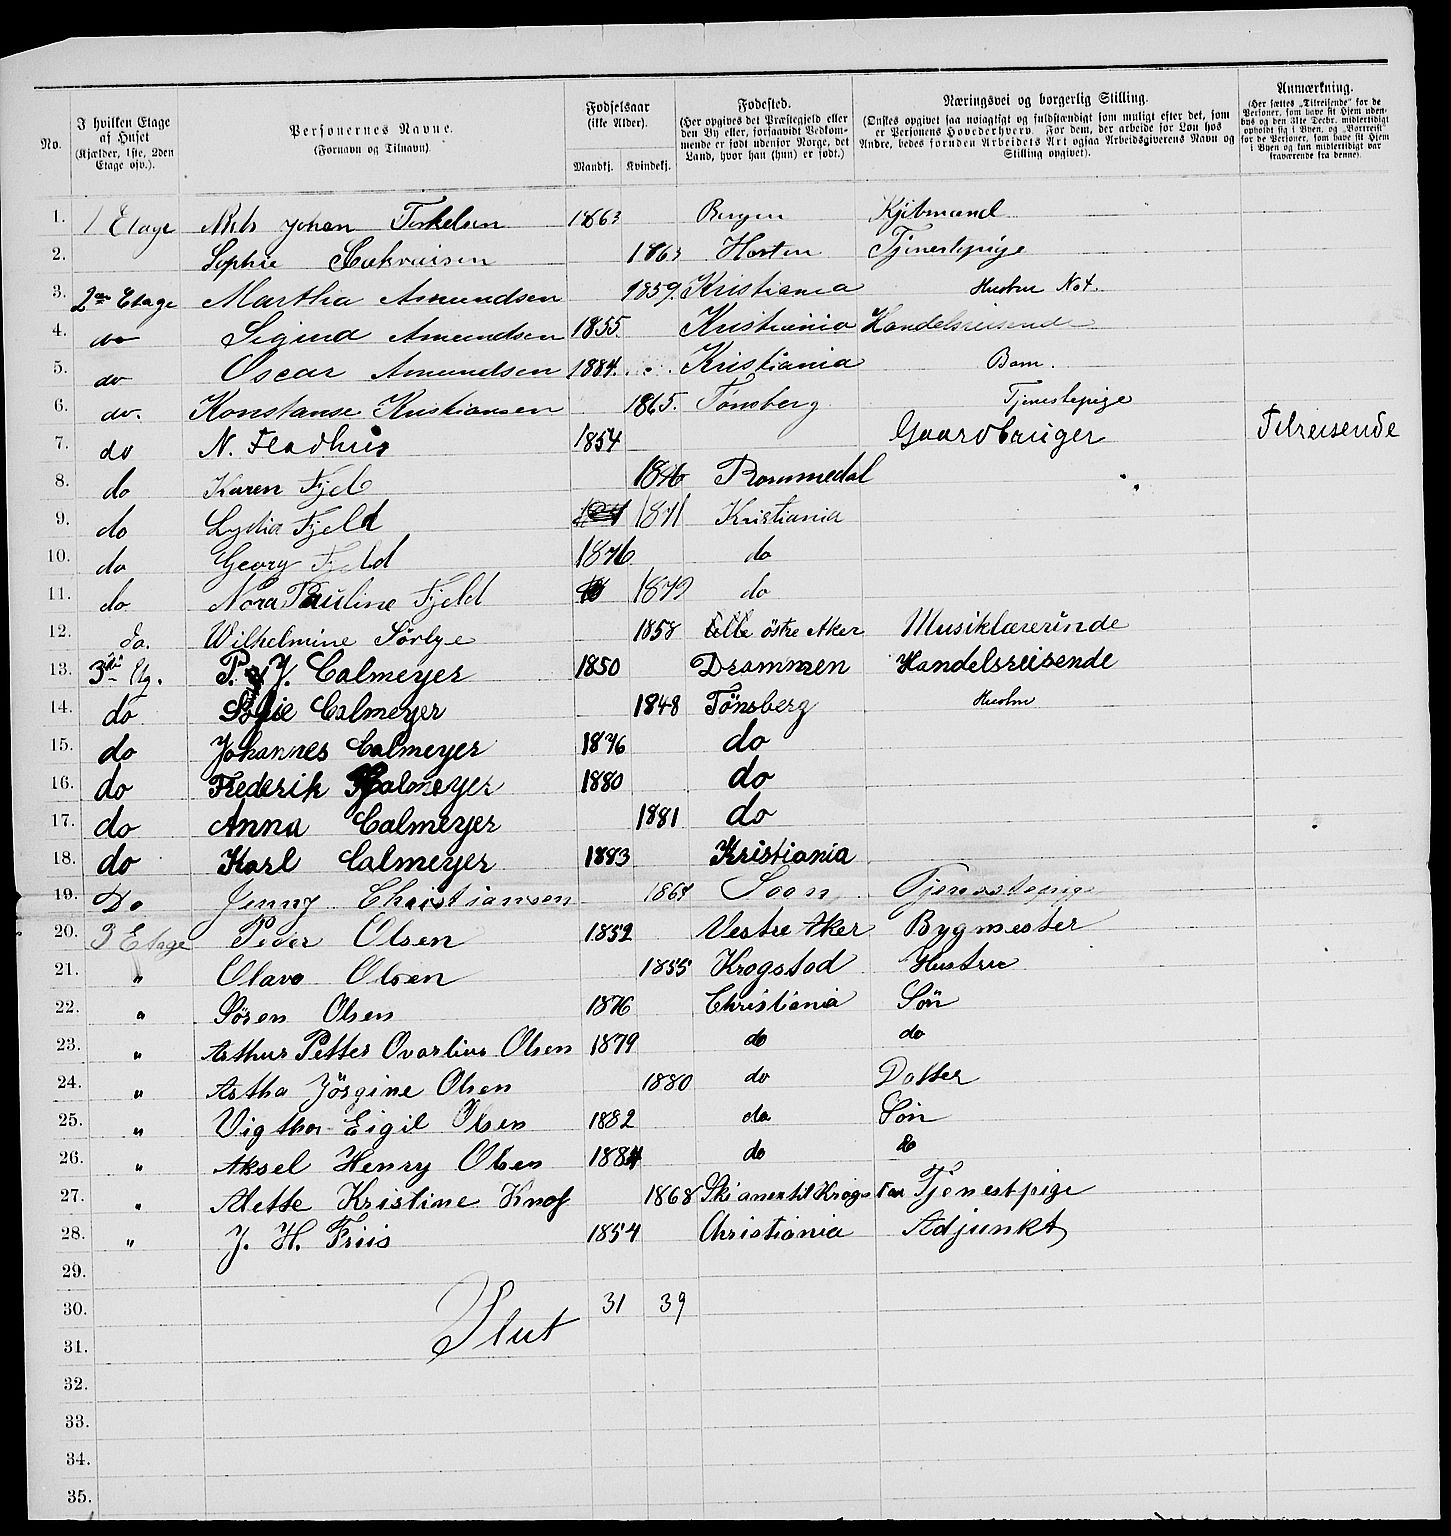 No. | I hvilken Etage af Huset (Kjælder, 1ste, 2den Etage osv.). | Personernes Navne. (Fornavn og Tilnavn). | Fødselsaar (ikke Alder). Mandkj. Kvindekj. | Fødested. (Her opgives det Præstegjeld eller den By eller, forsaavidt Vedkommende er født udenfor Norge, det Land, hvor han (hun) er født.) | Næringsvei og borgerlig Stilling. (Ønskes opgivet saa nøiagtigt og fuldstændigt som muligt efter det, som er Personens Hovederhverv. For dem, der arbeide for Løn hos Andre, bedes foruden Arbeidets Art ogsaa Arbeidsgiverens Navn og Stilling opgivet). | Anmærkning. (Her sættes „Tilreisende" for de Personer, som have sit Hjem udenbys og den 31te Decbr. midlertidigt opholdt sig i Byen, og „Bortreist" for de Personer, som have sit Hjem i Byen og kun midlertidigt var fraværende fra denne).
1. 1 Etage Johan Torkelsen 1863 Bergen Kjøbmand
2. Sophie 1863 Horten Tjenestepige
3. 2den Etage Martha Amundsen 1859. Kristiania Hustru
4. do Sigurd Amundsen 1855. Kristiania Handelsreisende
5. do Oscar Amundsen 1884. Kristiania Barn.
6. do. Konstanse Kristiansen 1865. Tønsberg Tjenestepige
7. do N. Fladhus 1854 Gaardbruger Tilreisende
8. do Karen Fjeld Rommedal
9. do Lydia Fjeld 1871 Kristiania
10. do Georg Fjeld 1876 do
11. do Nora Pauline Fjeld 1879 do
12. do. Wilhelmine Sørbye 1858 østre Aker Musiklærerinde
13. 3die Etg. P. J. Calmeyer 1850 Drammen Handelsreisende
14. do Sofie Calmeyer 1848 Tönsberg Hustru
15. do Johannes Calmeyer 1876 do
16. do Frederik Calmeyer 1880 do
17. do Anna Calmeyer 1881 do
18. do Karl Calmeyer 1883 Kristiania
19. Do Jenny Christiansen Soon Tjenestepige
20. 3 Etage Peder Olsen 1852 Vestre Aker Bygmester
21. " Olava Olsen 1855 Krogstad Hustru
22. " Sören Olsen 1876 Christiania Sön
23. " Arthur Petter Olsen 1879 do do
24. " Astha Jörgine Olsen 1880 do Datter
25. " Vigthor Eigil Olsen 1882 do Sön
26. " Aksel Henry Olsen 1884 do do
27. " Mette Kristine 1868 Ski Tjenestpige
28. " J. H. Friis 1854 Christiania Adjunkt
29.
30. 31 39
Slut
31.
32.
33.
34.
35.